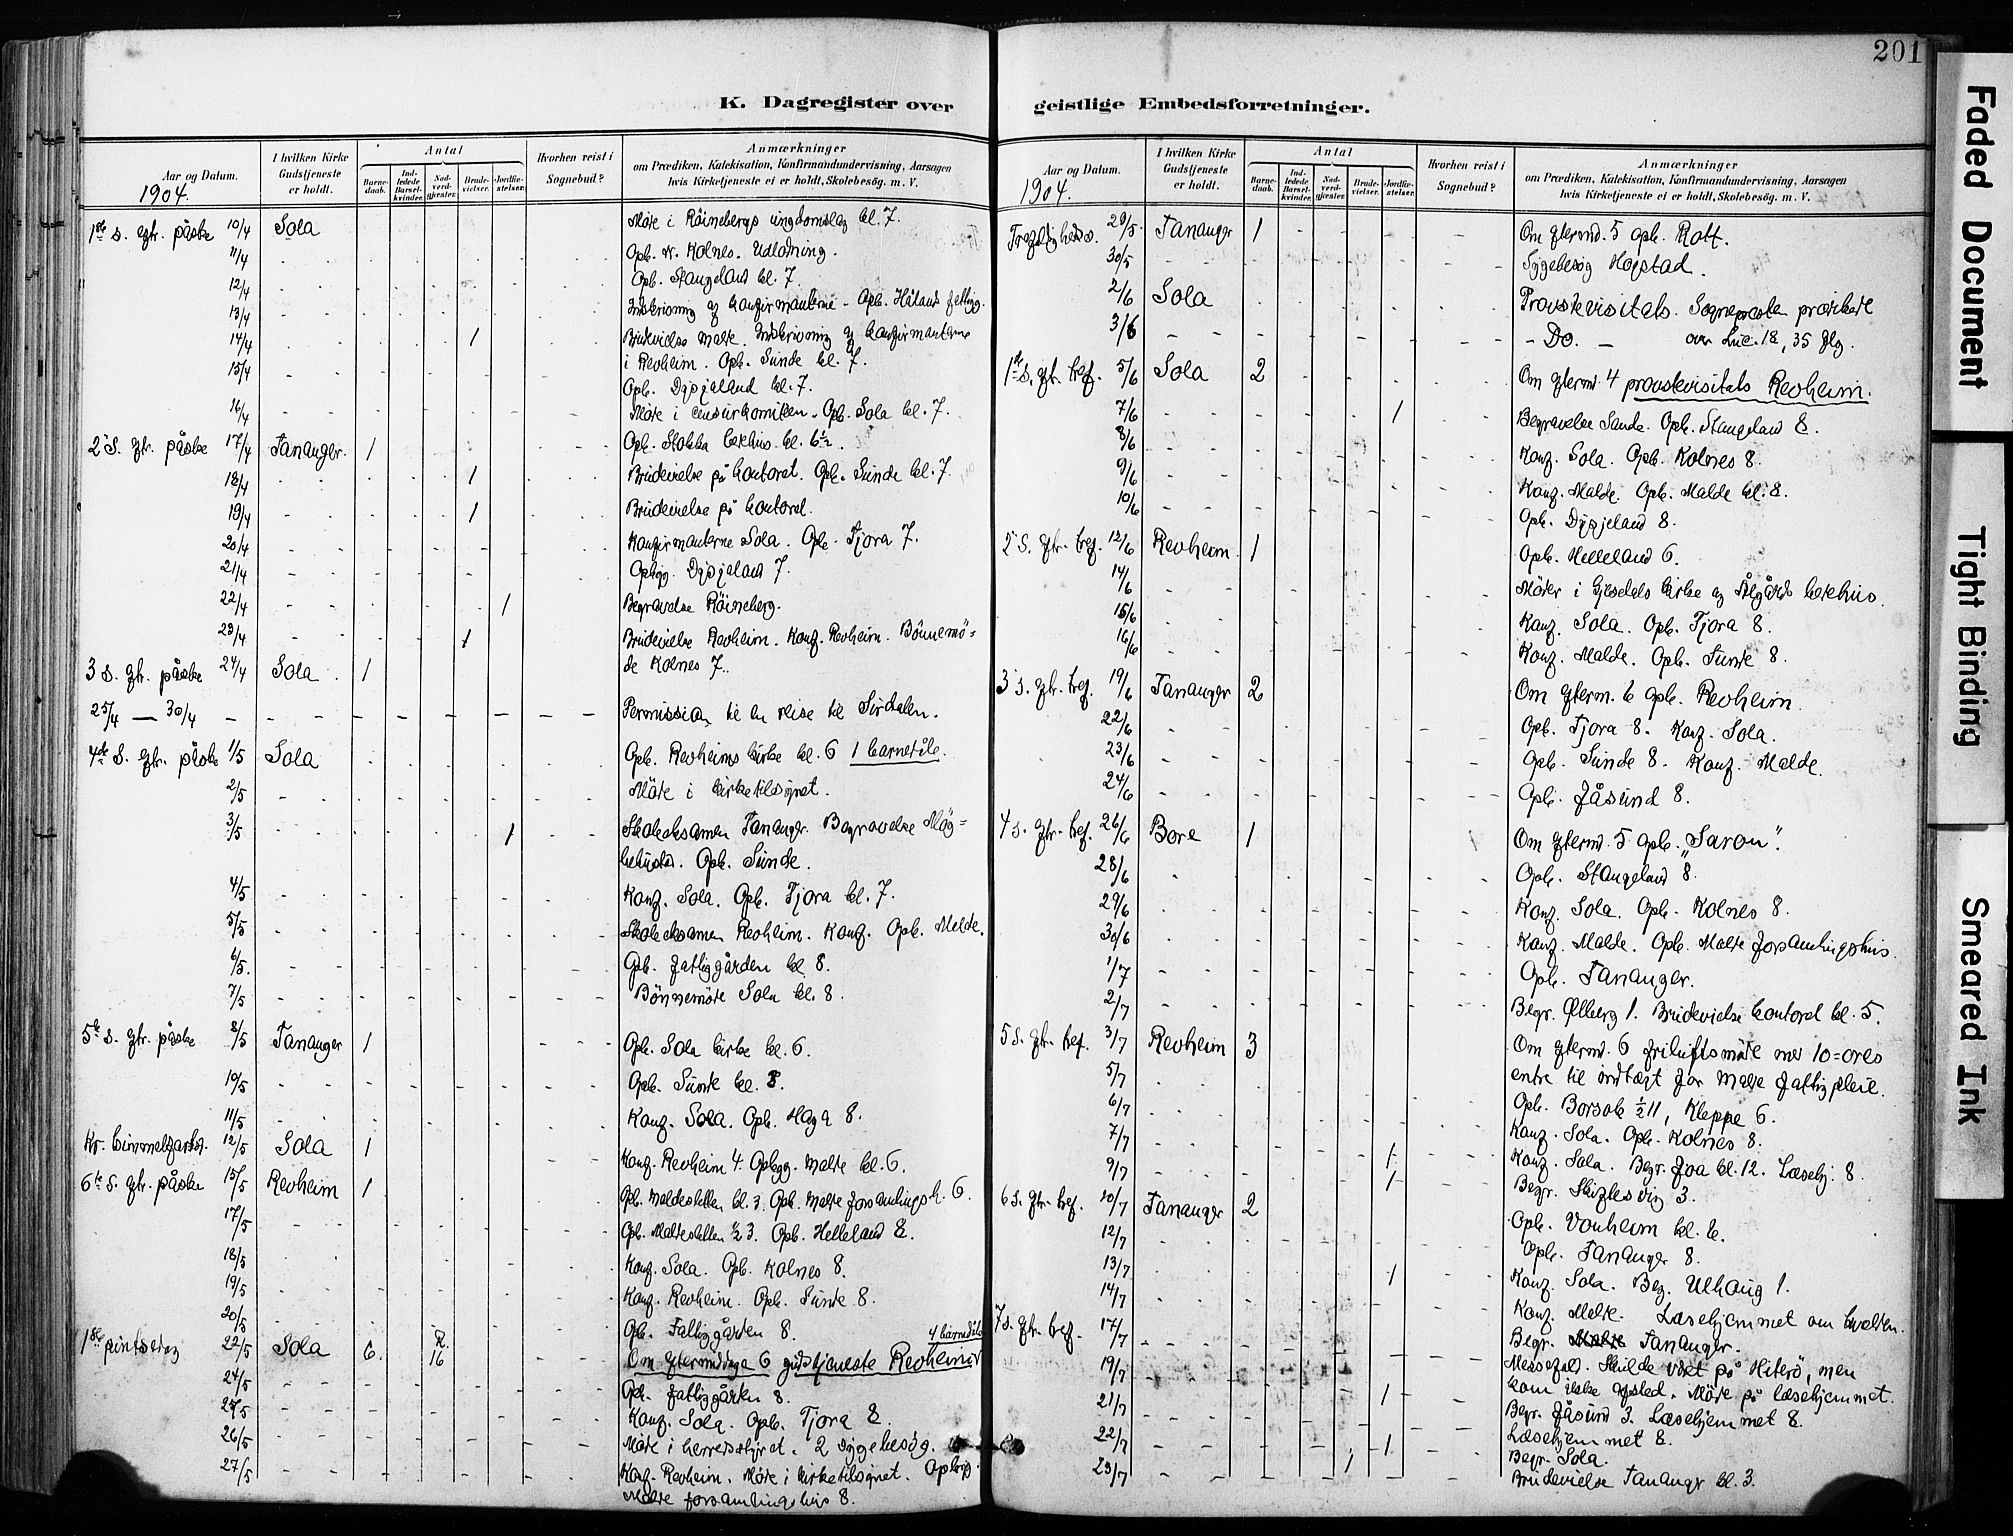 201
K. Dagregister over geistlige Embedsforretninger.
Aar og Datum. I hvilken Kirke Gudstjeneste er holdt. Antal Hvorhen reist i Sognebud? Anmærkninger
Barnedaab. Indledede Barselkvinder. Nadverdgjester. Brudevielser. Jordfæstelser.
om Prædiken, Katekisation, Konfirmandundervisning, Aarsagen
hvis Kirketjeneste ei er holdt, Skolebesøg. m. V.
1904.
1ste s. eftr. påske 10/4 Sola Møte i Röinebergs ungdomslag kl. 7.
11/4 Opb. Kolnes. Udlodning.
12/4 Opb. Stangeland kl. 7.
13/4 Indskrivning af konfirmanterne - Opb. Håland fattigg.
14/4 1 Brudevielse Malde. Indskrivning af konfirmanterne
i Revheim. Opb. Sunde kl. 7.
15/4 Opb. Dysjeland kl. 7.
16/4 Møte i censurkomiteen. Opb. Sola kl. 7.
2 S. eftr. påske 17/4 Tananger. 1 Opb. Stokka bethus kl. 6 1/2.
18/4 1 Brudevielse på kontoret. Opb. Sunde kl. 7.
19/4 1 Brudevielse på kontoret.
20/4 Konfirmanterne Sola. Opb. Tjora 7.
21/4 Opbygg. Dysjeland 7.
22/4 1 Begravelse Röineberg.
23/4 1 Brudevielse Revheim. Konf. Revheim. Bönnemö=
3 s. eftr. påske 24/4 Sola 1 de Kolnes 7.
25/4 — 30/4 Permission til en reise til Sirdalen.
4de S. eftr. påske 1/5 Sola Opb. Revheims kirke kl. 6 1 barnedåb.
2/5 Møte i kirketilsynet.
3/5 1 Skoleeksamen Tananger. Begravelse Mög=
Opb. Sunde.
4/5 Konf. Sola. Opb. Tjora kl. 7.
5/5 Skoleeksamen Revheim. Konf. Opb. Melde.
6/5 Opb. fattiggården kl 8.
7/5 Bönnemöte Sola kl. 8.
5te s. eftr. påske 8/5 Tananger 1 Opb. Sola kirke kl. 6.
10/5 Opb. Sunde kl. 8.
11/5 Konf. Sola. Opb. Haga 8.
Kr. himmelfartsd. 12/5 Sola 1 Konf. Revheim 4. Opbygg. Malde kl. 6.
6te S. eftr. påske 15/5 Revheim 1 Opb. Meldesletten kl. 3. Opb. Malde forsamlingsh. 6.
17/5 Opb. Maldesletten 1/2 3. Opb. Helleland 8.
18/5 Konf. Sola. Opb. Kolnes 8.
19/5 Konf. Revheim. Opb. Sunde 8.
20/5 Opb. Fattiggården 8. 4 barnedåb
1ste pintsedag 22/5 Sola 6. 16 Om eftermiddagen 6 gudstjeneste Revheim
24/5 Opb. fattiggården 8.
25/5 Konf. Sola. Opb. Tjora 8.
26/5 Møte i herredsstyret. 2 sygebesög.
27/5 Konf. Revheim. Møte i kirketilsynet. Opbyg.
Malde forsamlingshus 8.
K. Dagregister over geistlige Embedsforretninger.
Aar og Datum. I hvilken Kirke Gudstjeneste er holdt. Antal Hvorhen reist i Sognebud? Anmærkninger
Barnedaab. Indledede Barselkvinder. Nadverdgjester. Brudevielser. Jordfæstelser.
om Prædiken, Katekisation, Konfirmandundervisning, Aarsagen
hvis Kirketjeneste ei er holdt, Skolebesøg. m. V.
1904.
Trefoldigheds. 29/5 Tananger 1 Om eftermd. 5 opb. Rott.
30/5 Sygebesög Hogstad.
2/6 Sola Provstevisitats. Sognepræsten prædikede
3/6 - Do. - over Luc. 18, 35 flg.
1ste s. eftr. tref. 5/6 Sola 2 Om eftermd. 4 provstevisitats Revheim.
7/6 1 Begravelse Sande. Opb. Stangeland 8.
8/6 Konf. Sola. Opb. Kolnes 8.
9/6 Konf. Malde. Opb. Malde kl. 8.
10/6 Opb. Dysjeland 8.
2 S. eftr. tref. 12/6 Revheim 1 Opb. Helleland 6.
14/6 Möter i Gjesdals kirke og Ålgårds bethus.
15/6 Konf. Sola. Opb. Tjora 8.
16/6 Konf. Malde. Opb. Sunde 8.
3 s. eftr. tref. 19/6 Tananger 2 Om efterm. 6 opb. Revheim.
22/6 Opb. Tjora 8. Konf. Sola.
23/6 Opb. Sunde 8. Konf. Malde.
24/6 Opb. Jåsund 8.
4 s. eftr. tref. 26/6 Bore 1 Om eftermd. 5 opb. "Saron".
28/6 Opb. Stangeland 8.
29/6 Konf. Sola. Opb. Kolnes 8.
30/6 Konf. Malde. Opb. Malde forsamlingshus.
1/7 Opb. Tananger.
2/7 Begr. Ølberg 1. Brudevielse kontoret kl. 5.
5 s. eftr. tref. 3/7 Revheim 3 Om eftermd. 6 friluftsmöte med 10=øres
entre til indtægt for Malde fattigpleie.
5/7 Opb. Borsok 1/2 11, Kleppe 6.
6/7 Konf. Sola. Opb. Kolnes 8.
7/7 1 Konf. Sola. Begr. Joa kl. 12. Læsehj. 8
9/7 1 Begr. Skiftesvig 3.
6 s. eftr. tref. 10/7 Tananger 2 Opb. Vonheim kl. 6.
12/7 Opb. Tananger 8.
13/7 1 Konf. Sola. Beg. Ulhaug 1.
14/7 Konf. Malde. Læsehjemmet om kvelden.
7 s. eftr. tref. 17/7 Begr. Tananger.
19/7 Messefald. Skulde vært på Hiterö, men
kom ikke afsted. Møte på læsehjemmet.
21/7 1 Begr. Jåsund 3. Læsehjemmet 8.
Læsehjemmet 8.
22/7 1 Begr. Sola.
23/7 1 Brudevielse Tananger kl. 3.
Faded Document
Tight Binding
Smeared Ink